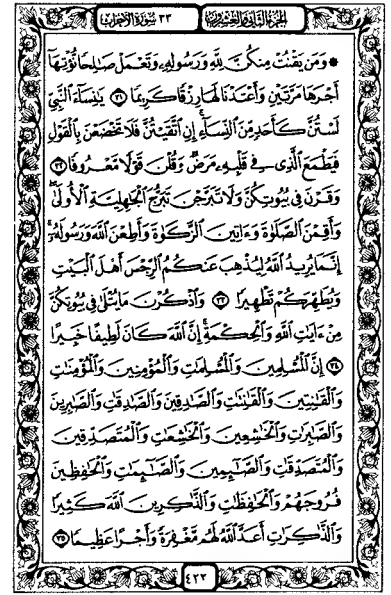 الجزء الثاني والعشرون
٣٣ سورة الأحزاب
* وَمَن يَقْنُتْ مِنكُنَّ لِلَّهِ وَرَسُولِهِ وَتَعْمَلْ صَالِحًا نُّؤْتِهَا
أَجْرَهَا مَرَّتَيْنِ وَأَعْتَدْنَا لَهَا رِزْقًا كَرِيمًا ٣١ يَانِسَاءَ النَّبِيِّ
لَسْتُنَّ كَأَحَدٍ مِّنَ النِّسَاءِ إِنِ اتَّقَيْتُنَّ فَلَا تَخْضَعْنَ بِالْقَوْلِ
فَيَطْمَعَ الَّذِي فِي قَلْبِهِ مَرَضٌ وَقُلْنَ قَوْلًا مَّعْرُوفًا ٣٢
وَقَرْنَ فِي بُيُوتِكُنَّ وَلَا تَبَرَّجْنَ تَبَرُّجَ الْجَاهِلِيَّةِ الْأُولَىٰ
وَأَقِمْنَ الصَّلَوٰةَ وَءَاتِينَ الزَّكَوٰةَ وَأَطِعْنَ اللَّهَ وَرَسُولَهُ
إِنَّمَا يُرِيدُ اللَّهُ لِيُذْهِبَ عَنكُمُ الرِّجْسَ أَهْلَ الْبَيْتِ
وَيُطَهِّرَكُمْ تَطْهِيرًا ٣٣ وَاذْكُرْنَ مَا يُتْلَىٰ فِي بُيُوتِكُنَّ
مِنْ ءَايَٰتِ اللَّهِ وَالْحِكْمَةِ إِنَّ اللَّهَ كَانَ لَطِيفًا خَبِيرًا
٣٤ إِنَّ الْمُسْلِمِينَ وَالْمُسْلِمَٰتِ وَالْمُؤْمِنِينَ وَالْمُؤْمِنَٰتِ
وَالْقَٰنِتِينَ وَالْقَٰنِتَٰتِ وَالصَّٰدِقِينَ وَالصَّٰدِقَٰتِ وَالصَّٰبِرِينَ
وَالصَّٰبِرَٰتِ وَالْخَٰشِعِينَ وَالْخَٰشِعَٰتِ وَالْمُتَصَدِّقِينَ
وَالْمُتَصَدِّقَٰتِ وَالصَّٰئِمِينَ وَالصَّٰئِمَٰتِ وَالْحَٰفِظِينَ
فُرُوجَهُمْ وَالْحَٰفِظَٰتِ وَالذَّٰكِرِينَ اللَّهَ كَثِيرًا
وَالذَّٰكِرَٰتِ أَعَدَّ اللَّهُ لَهُم مَّغْفِرَةً وَأَجْرًا عَظِيمًا ٣٥
٤٢٢